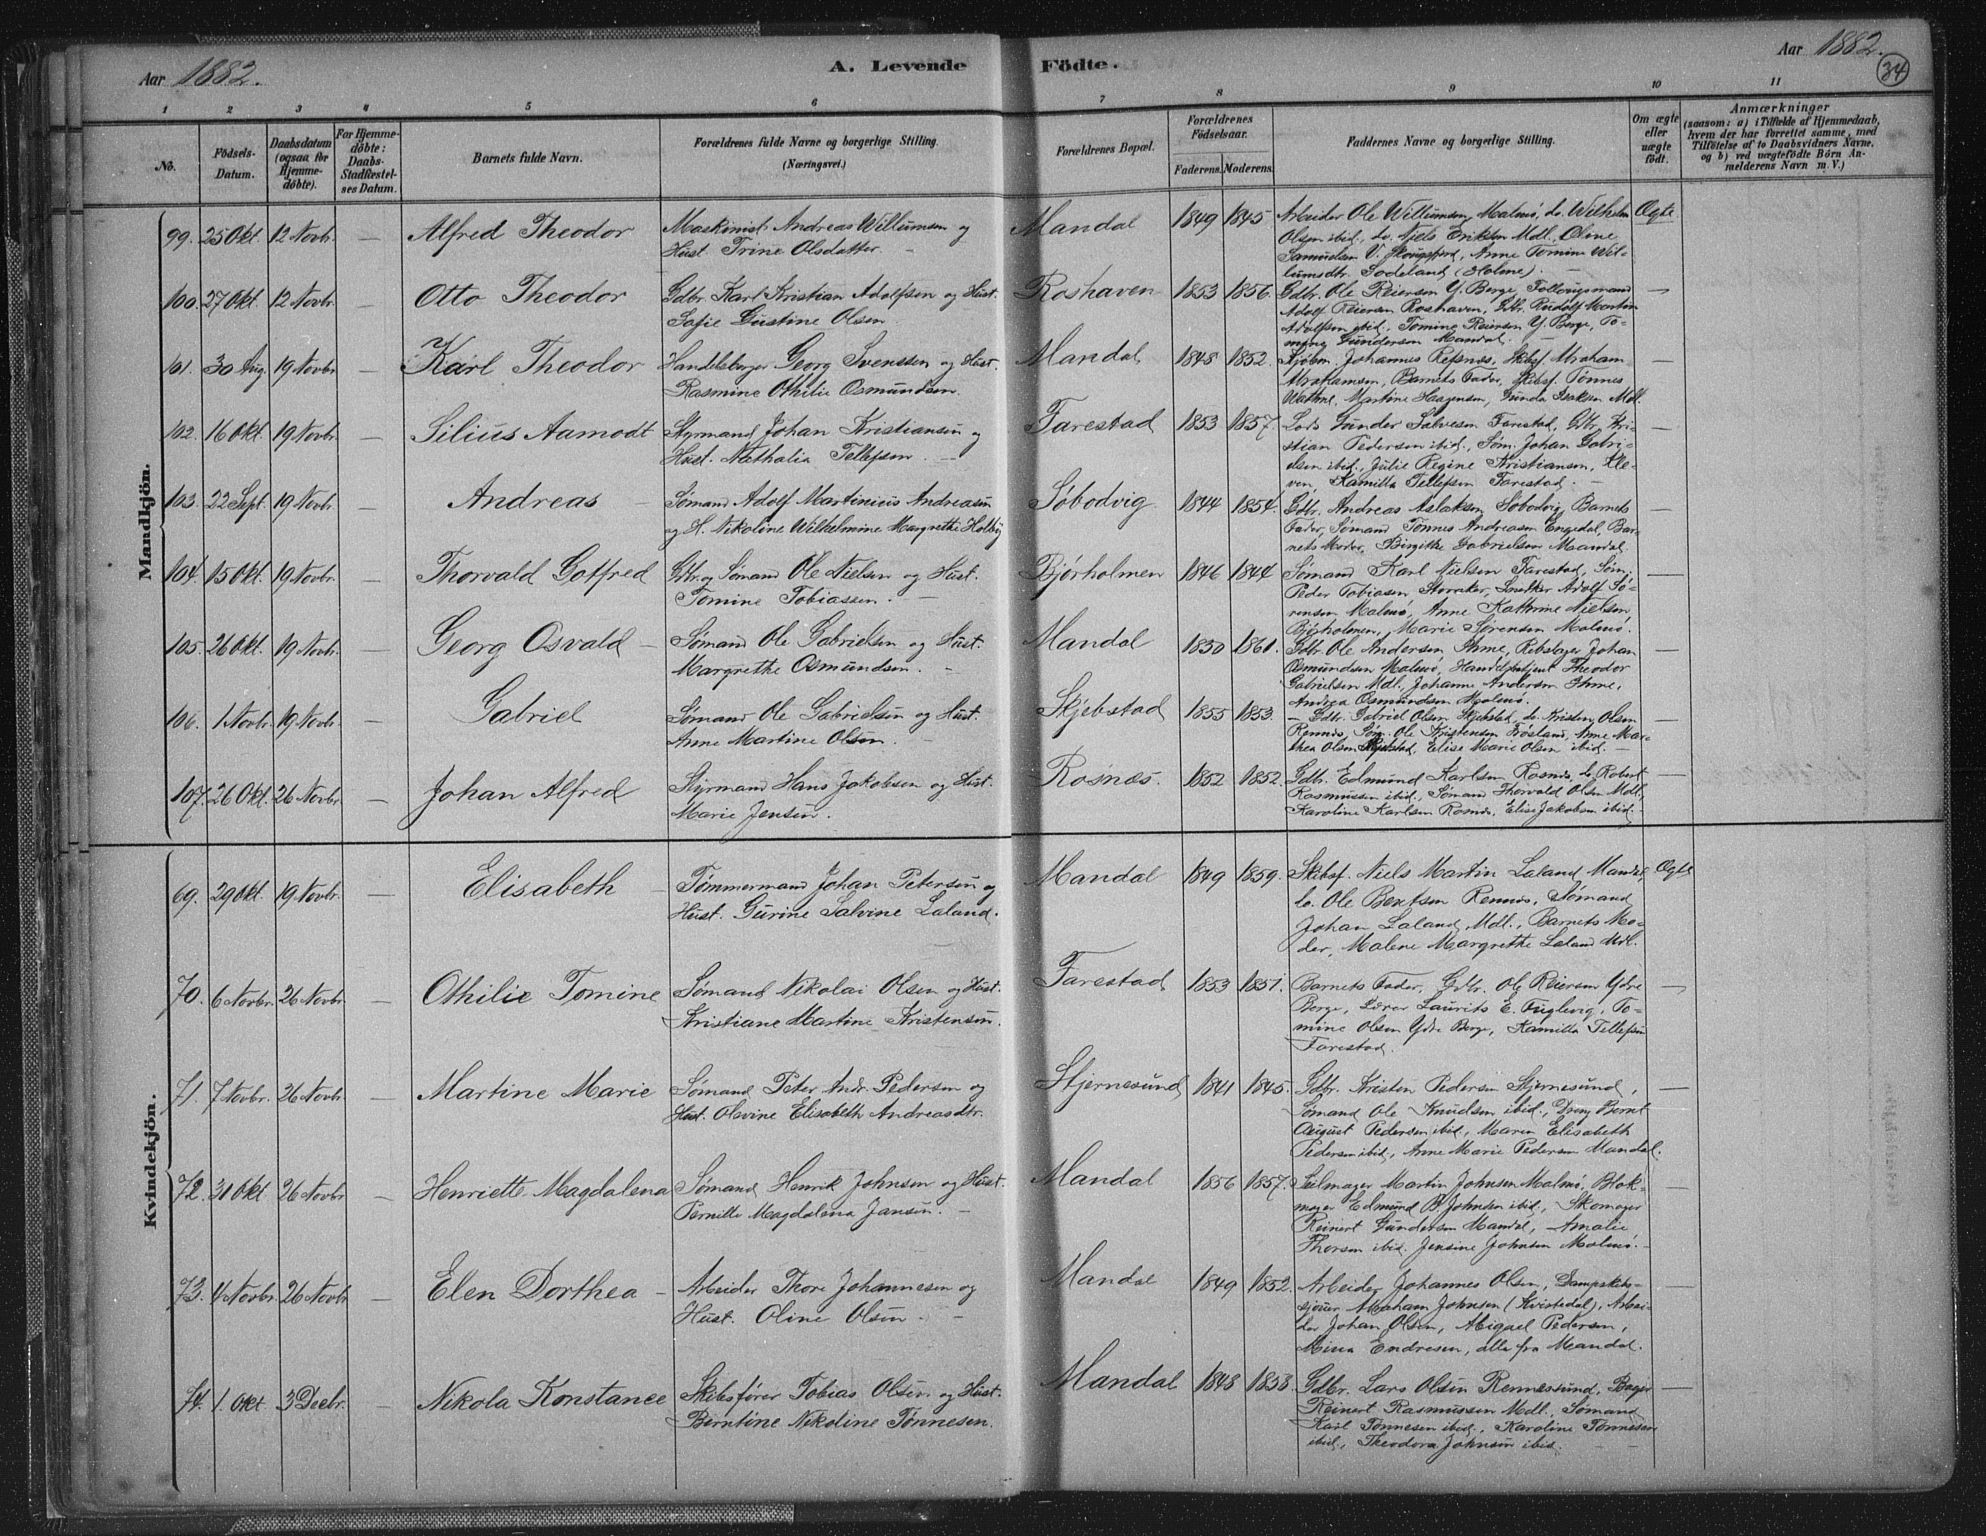 Aar 1882. A. Levende Födte. Aar 1882.
34
1 2 3 4 5 6 7 8 9 10 11
No. Födsels-Datum. Daabsdatum (ogsaa for Hjemme-döbte). For Hjemme-döbte: Daabs-Stadfæstel-ses Datum. Barnets fulde Navn. Forældrenes fulde Navne og borgerlige Stilling. (Næringsvei.) Forældrenes Bopæl. Forældrenes Födselsaar. Faderens. Moderens. Faddernes Navne og borgerlige Stilling. Om ægte eller uægte födt. Anmærkninger
(saasom: a) i Tilfælde af Hjemmedaab,
hvem der har forrettet samme, med
Tilföielse af to Daabsvidners Navne,
og b) ved uægtefödte Börn An-
melderens Navn m. V.)
Mandkjön.
99. 25 Okt. 12 Novbr. — Alfred Theodor Maskinist Andreas Willumsen og
Hust. Trine Olsdatter. Mandal 1849 1845. Arbeider Ole Willumsen Malmö, do. Wilhelm Ægte.
Olsen ibid., do. Niels Eriksen Mdl., Oline
Samuelsen V. Skougsfjord, Anne Tomine Wil-
lumsdtr. Sodeland (Holme). —
100. 27 Okt. 12 Novbr. — Otto Theodor Gdbr. Karl Kristian Adolfsen og Hust.
Sofie Gustine Olsen Roshaven 1853 1856. Gdbr. Ole Reiersen Y. Berge, Follougsmand —
Adolf Reiersen Roshaven, Gdbr. Rudolf Martin
Adolfsen ibid., Tomine Reiersen Y. Berge, To-
mine Gundersen Mandal.
101. 30 Aug. 19 Novbr. — Karl Theodor Handelsborger Georg Svenssen og Hust.
Rasmine Othilie Osmundsen. Mandal 1848 1852. Kjöbm. Johannes Refsnæs, Skibsf. Abraham —
Abrahamsen, Barnets Fader, Skibsf. Tönnes
Wathne, Martine Jörgensen, Gunda Isaksen Mdl.
102. 16 Okt. 19 Novbr. — Silius Aamodt Styrmand Johan Kristiansen og
Hust. Nathalia Tellefsen. — Farestad 1853 1857. Lods Gunder Salvesen Farestad, Gdbr. Kri- —
stian Pedersen ibid., Söm. Johan Gabri-
elsen ibid., Julie Regine Kristiansen, Kle-
ven, Kamilla Tellefsen Farestad. —
103. 22 Sept. 19 Novbr. — Andreas Sömand Adolf Martinius Andreasen
og H. Nikoline Wilhelmine Margrethe Holby Söbodvig 1844 1854. Gdbr. Andreas Aslaksen Söbodvig, Barnets —
Fader, Sömand Tönnes Andreasen Engedal, Bar-
nets Moder, Birgitte Gabrielsen Mandal.
104. 15 Okt. 19 Novbr. — Thorvald Gotfred Gbr. og Sömand Ole Nielsen og Hust.
Tomine Tobiassen. — Björholmen 1846 1844 Sömand Karl Nielsen Farestad, Söm. —
Peder Tobiasen Storaker, Snedker Adolf Sö-
rensen Malmö, Anne Kathrine Nielsen
Björholmen, Marie Sörensen Malmö.
105. 26 Okt. 19 Novbr. — Georg Osvald — Sömand Ole Gabrielsen og Hust.
Margrethe Osmundsen. — Mandal 1850 1861. Gdbr. Ole Andersen Ihme, Rebslager Johan —
Osmundsen Malmö, Handelsbetjent Theodor
Gabrielsen Mdl. Johanne Andersen Ihme,
Andrea Osmundsen Malmö.
106. 1 Novbr. 19 Novbr. — Gabriel Sömand Ole Gabrielsen og Hust.
Anne Martine Olsen. — Skjebstad 1855 1853. — Gdbr. Gabriel Olsen Skjebstad, do. Kristen Olsen —
Rennæs, Söm. Ole Kristensen Fröisland, Anne Mar-
thea Olsen Skjebstad, Elise Marie Olsen ibid. —
107. 26 Okt. 26 Novbr. — Johan Alfred Styrmand Hans Jakobsen og Hust.
Marie Jensen. Rosnæs. 1852 1852. Gdbr. Edmund Karlsen Rosnæs, do. Robert —
Rasmussen ibid., Sömand Thorvald Olsen Mdl.,
Karoline Karlsen Rosnæs, Elise Jakobsen ibid. —
Kvindekjön.
69. 29 Okt. 19 Novbr. — Elisabeth — Tömmermand Johan Petersen og
Hust. Gurine Salvine Laland. Mandal 1849 1859. Skibsf. Niels Martin Laland Mandal, Ægte
do. Ole Bentsen Rennæs, Sömand
Johan Laland Mdl., Barnets Mo-
der, Malene Margrethe Laland Mdl.
70. 6 Novbr. 26 Novbr. — Othilie Tomine Sömand Nikolai Olsen og Hust.
Kristiane Martine Kristensen. Farestad 1853 1851. Barnets Fader, Gdbr. Ole Reiersen Ydre —
Berge, Lærer Laurits E. Fuglevig, To-
mine Olsen Ydre Berge, Kamilla Tellefsen
Farestad.
71. 7 Novbr. 26 Novbr. — Martine Marie Sömand Peter Andr. Pedersen og
Hust. Olevine Elisabeth Andreasdtr. Stjernesund 1841 1845. Gdbr. Kristen Pedersen Stjernesund, —
Sömand Ole Knudsen ibid., Dreng Bernt
August Pedersen ibid., Maren Elisabeth
Pedersen ibid., Anne Marie Pedersen Mandal.
72. 31 Okt. 26 Novbr. — Henriette Magdalena Sömand Henrik Johnsen og Hust.
Pernille Magdalena Jansen. — Mandal 1856 1857. Seilmager Martin Johnsen Malmö, Blok- —
mager Edmund B. Johnsen ibid., Skomager
Reinert Gundersen Mandal, Amalie
Thorsen ibid. Jensine Johnsen Malmö. —
73. 4 Novbr. 26 Novbr. — Elen Dorthea — Arbeider Thore Johannesen og
Hust. Oline Olsen. — Mandal 1849 1852. Arbeider Johannes Olsen, Dampskibs- —
förer Abraham Johnsen (Kvistedal), Arbei-
der Johan Olsen, Abigael Pedersen,
Mina Endresen, alle fra Mandal.
74. 1. Okt. 3 Decbr. — Nikola Konstance Skibsförer Tobias Olsen og Hust.
Berntine Nikoline Tönnesen. Mandal 1848 1853. Gdbr. Lars Olsen Rennesund, Bager —
Reinert Rasmussen Mdl., Sömand
Karl Tönnesen ibid., Karoline Tönnesen
ibid., Theodora Johnsen ibid. —